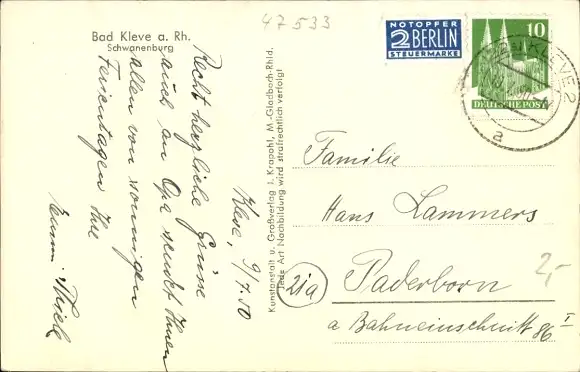 47533
Bad Kleve a. Rh.
Schwanenburg
Kleve, 9/7.50
Recht herzliche Grüsse
auch an Opa sendet Ihnen
allen von sonnigen
Ferientagen Ihre
Thiele
Kunstanstalt u. Großverlag J. Krapohl, M.-Gladbach-Rhld.
Jede Art Nachbildung wird strafrechtlich verfolgt
NOTOPFER
2 BERLIN
STEUERMARKE
10
DEUTSCHE POST
KLEVE 2
a
Familie
Hans Lammers
21a
Paderborn
a Bahneinschnitt 86 I
2,-